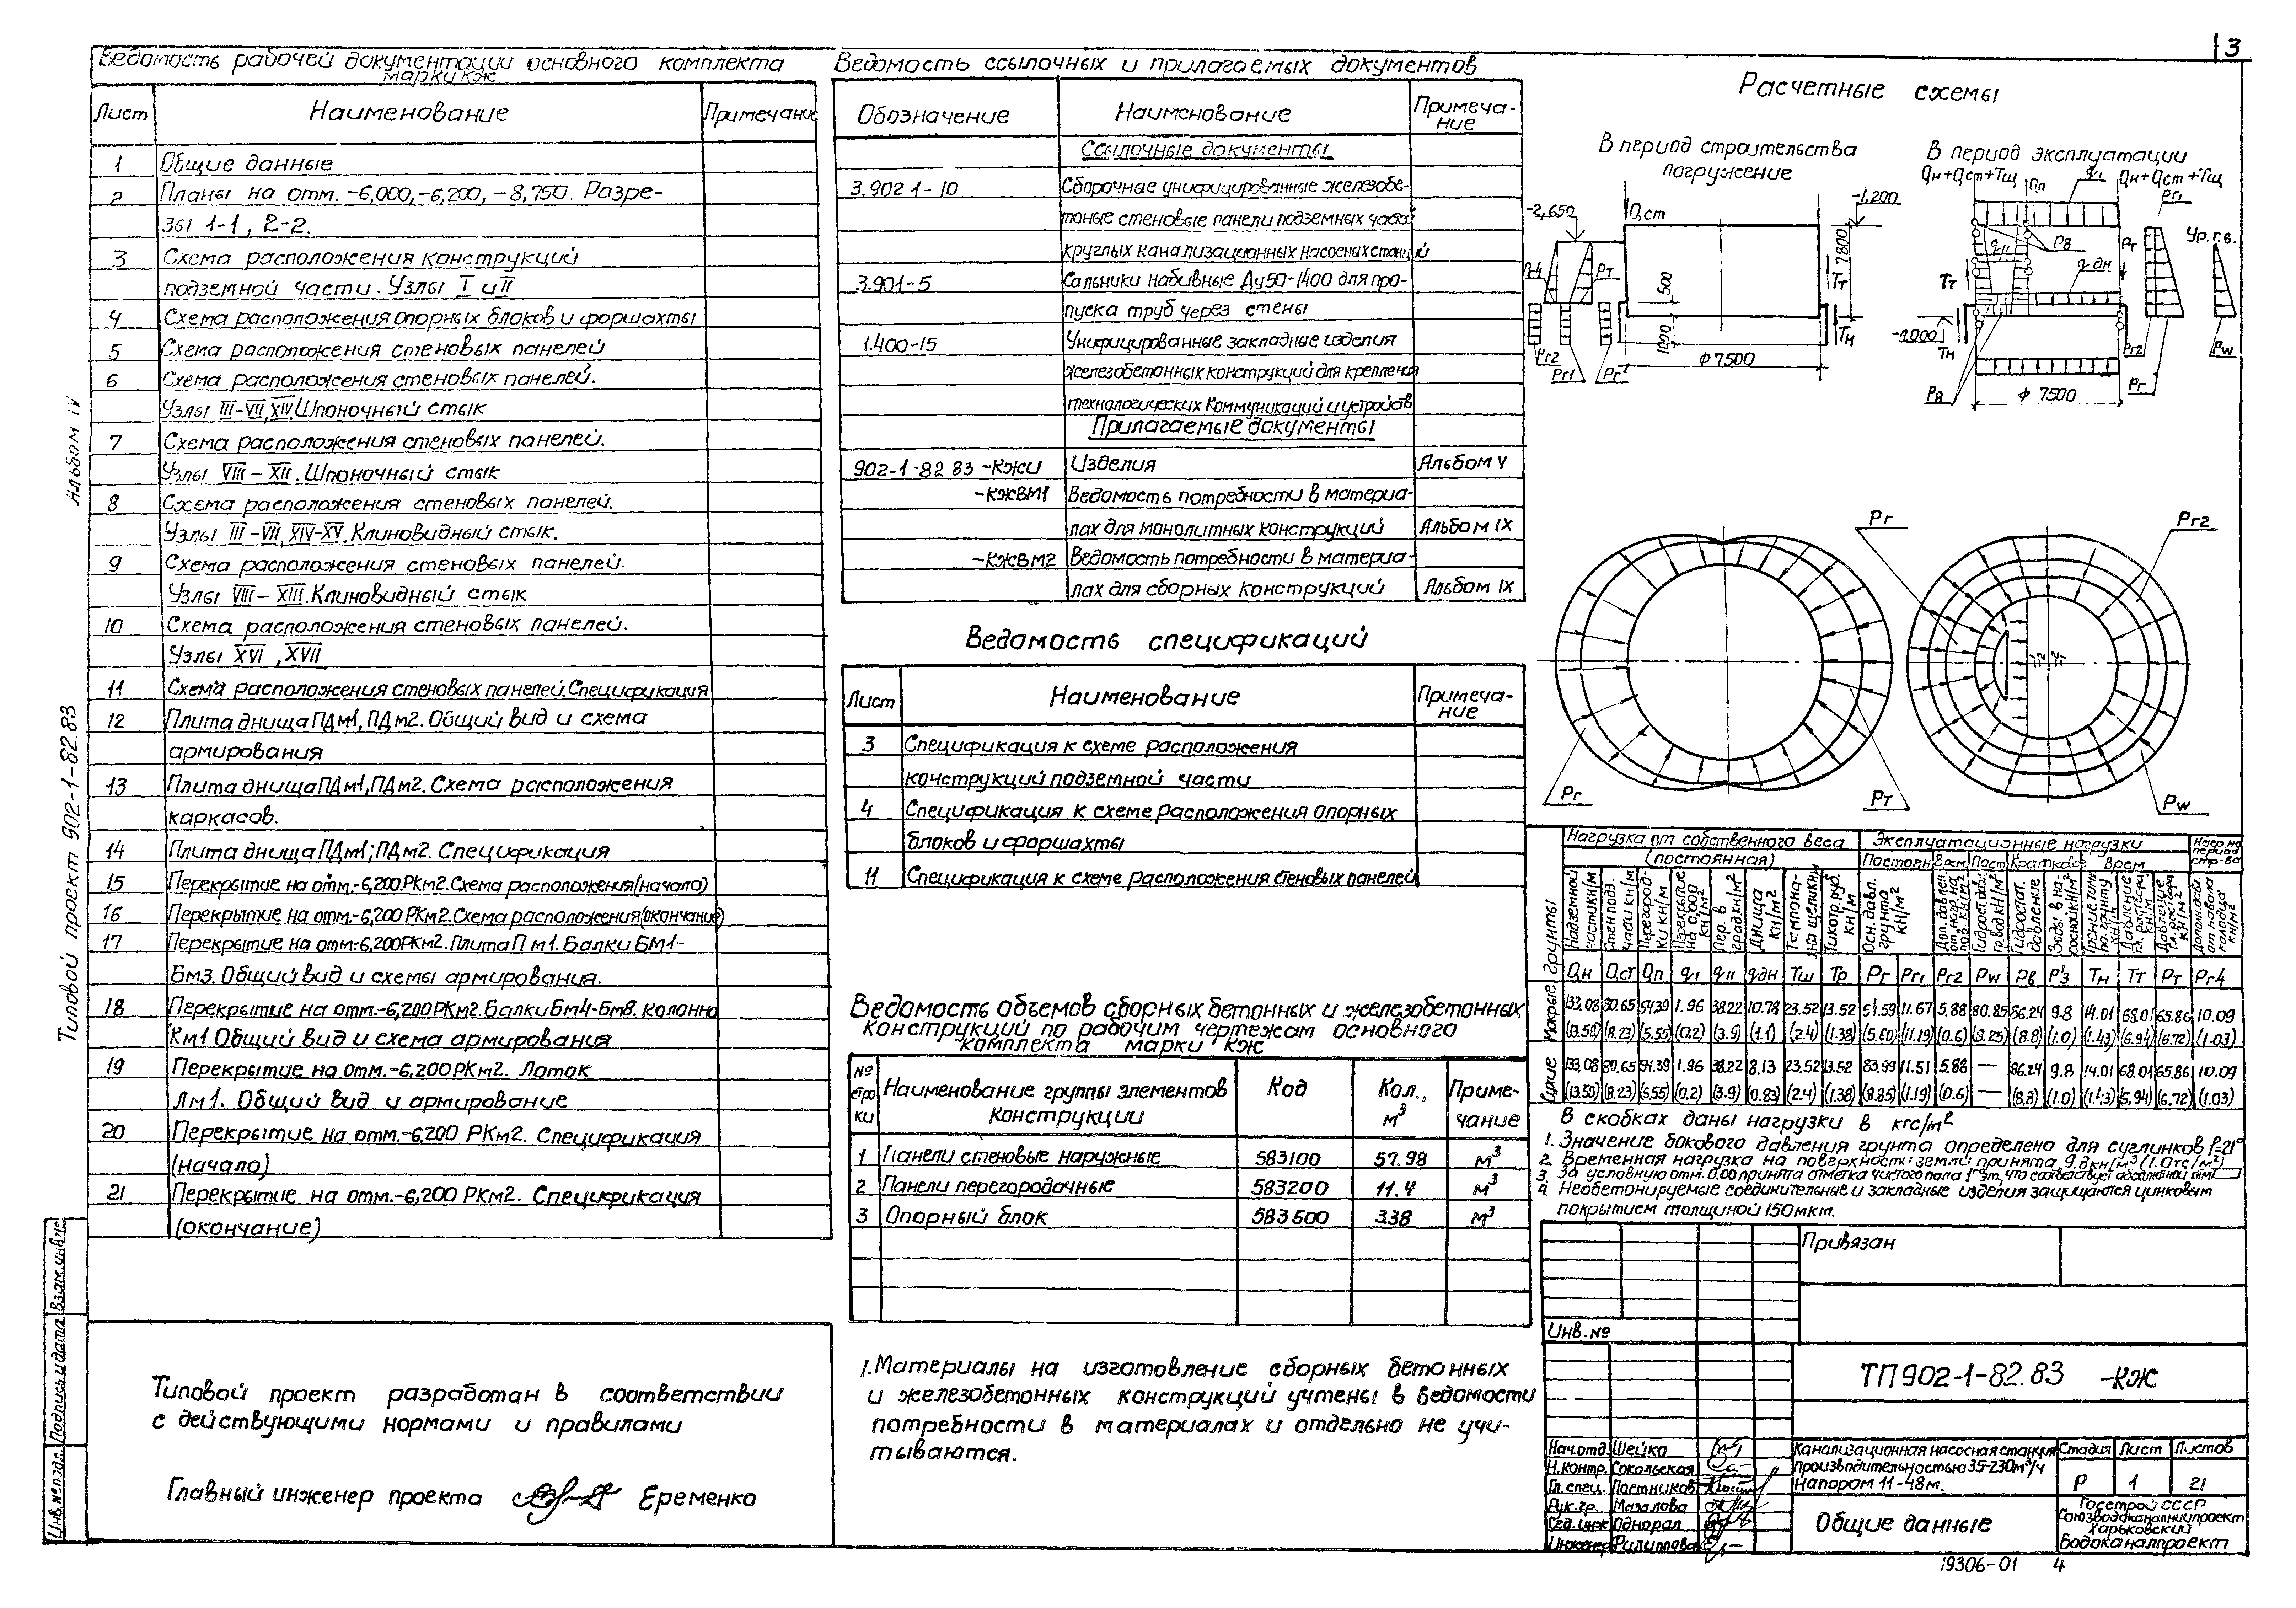 3
Ведомость рабочей документации основного комплекта
марки КЖ
Лист Наименование Примечание
1 Общие данные
2 Планы на отм. -6,000,-6,200,-8,750. Разре-
зы 1-1, 2-2.
3 Схема расположения конструкций
подземной части. Узлы I и II
4 Схема расположения опорных блоков и форшахты
5 Схема расположения стеновых панелей
6 Схема расположения стеновых панелей.
Узлы III-VII, XIV. Шпоночный стык
7 Схема расположения стеновых панелей.
Узлы VIII-XII. Шпоночный стык
8 Схема расположения стеновых панелей.
Узлы III-VII, XIV-XV. Клиновидный стык.
9 Схема расположения стеновых панелей.
Узлы VIII-XIII. Клиновидный стык
10 Схема расположения стеновых панелей.
Узлы XVI, XVII
11 Схема расположения стеновых панелей. Спецификация
12 Плита днища ПДм1, ПДм2. Общий вид и схема
армирования
13 Плита днища ПДм1, ПДм2. Схема расположения
каркасов.
14 Плита днища ПДм1; ПДм2. Спецификация
15 Перекрытие на отм.-6,200 РКм2. Схема расположения (начало)
16 Перекрытие на отм.-6,200 РКм2. Схема расположения (окончание)
17 Перекрытие на отм.-6,200 РКм2. Плита Пм1. Балки БМ1-
Бм3. Общий вид и схемы армирования.
18 Перекрытие на отм.-6,200 РКм2. Балки Бм4-Бм8. Колонна
Км1 Общий вид и схема армирования
19 Перекрытие на отм.-6,200 РКм2. Лоток
Лм1. Общий вид и армирование
20 Перекрытие на отм.-6,200 РКм2. Спецификация
(начало)
21 Перекрытие на отм.-6,200 РКм2. Спецификация
(окончание)
Типовой проект 902-1-82.83 Альбом IV
Инв.№ подл. Подпись и дата Взам.инв.№
Типовой проект разработан в соответствии
с действующими нормами и правилами
Главный инженер проекта Еременко
Ведомость ссылочных и прилагаемых документов
Обозначение Наименование Примеча-
ние
Ссылочные документы
3.902.1-10 Сборочные унифицированные железобе-
тоные стеновые панели подземных частей
круглых канализационных насосных станций
3.901-5 Сальники набивные Ду50-1400 для про-
пуска труб через стены
1.400-15 Унифицированные закладные изделия
железобетонных конструкций для крепления
технологических коммуникаций и устройств
Прилагаемые документы
902-1-82.83 -КЖИ Изделия Альбом V
-КЖВМ1 Ведомость потребности в материа-
лах для монолитных конструкций Альбом IX
-КЖВМ2 Ведомость потребности в материа-
лах для сборных конструкций Альбом IX
Ведомость спецификаций
Лист Наименование Примеча-
ние
3 Спецификация к схеме расположения
конструкций подземной части
4 Спецификация к схеме расположения опорных
блоков и форшахты
11 Спецификация к схеме расположения стеновых панелей
Ведомость объемов сборных бетонных и железобетонных
конструкций по рабочим чертежам основного
комплекта марки КЖ
№ стро ки Наименование группы элементов конструкции Код Кол., м³ Приме-чание
1 Панели стеновые наружные 583100 57.98 м³
2 Панели перегородочные 583200 11.4 м³
3 Опорный блок 583500 3.38 м³
1. Материалы на изготовление сборных бетонных
и железобетонных конструкций учтены в ведомости
потребности в материалах и отдельно не учи-
тываются.
Расчетные схемы
В период строительства
погружение
-2,650 Qст -1,200
7800 500 1000
Рг4 Рт Тт Тн
Рг2 Рг1 Рг ϕ7500
В период эксплуатации
Qн+Qст+Тщ Qп q1 Qн+Qст+Тщ
Рг1 Ур.г.в.
qII Рв Рт
Тт qдн
-9,000 Тн
Рв ϕ 7500 Рг2 Рг Рw
Рг Рг2
Рг Рт Рw
Грунты Нагрузка от собственного веса (постоянная) Эксплуатационные нагрузки
Qн Qст Qп qI qII qдн Тщ Тр Рг Рг1 Рг2 Рw Рв Р'з Тн Тт Рт Рг4
Мокрые 133.08 80.65 54.39 1.96 38.22 10.78 23.52 13.52 54.59 11.67 5.88 80.85 86.24 9.8 14.01 68.01 65.86 10.09
(13.58) (8.23) (5.55) (0.2) (3.9) (1.1) (2.4) (1.38) (5.60) (1.19) (0.6) (8.25) (8.8) (1.0) (1.43) (6.94) (6.72) (1.03)
Сухие 133.08 80.65 54.39 1.96 38.22 8.13 23.52 13.52 83.99 11.51 5.88 — 86.24 9.8 14.01 68.01 65.86 10.09
(13.58) (8.23) (5.55) (0.2) (3.9) (0.83) (2.4) (1.38) (8.85) (1.19) (0.6) — (8.8) (1.0) (1.43) (6.94) (6.72) (1.03)
В скобках даны нагрузки в кгс/м²
1. Значение бокового давления грунта определено для суглинков f=21°
2. Временная нагрузка на поверхности земли принята 9.8 кн/м³ (1.0тс/м²)
3. За условную отм. 0.00 принята отметка чистого пола 1го эт, что соответствует абсолютной отм.
4. Необетонируемые соединительные и закладные изделия защищаются цинковым
покрытием толщиной 150мкм.
Привязан
Инв.№
ТП902-1-82.83 -КЖ
Нач.отд. Шейко
Н.контр. Сокольская
Гл.спец. Постников
Рук.гр. Мазалова
Вед.инж Однорал
Инженер Филиппова
Канализационная насосная станция
производительностью 35-230м³/ч
Напором 11-48м.
Стадия Лист Листов
Р 1 21
Общие данные
Госстрой СССР
Союзводоканалниипроект
Харьковский
Водоканалпроект
19306-01 4